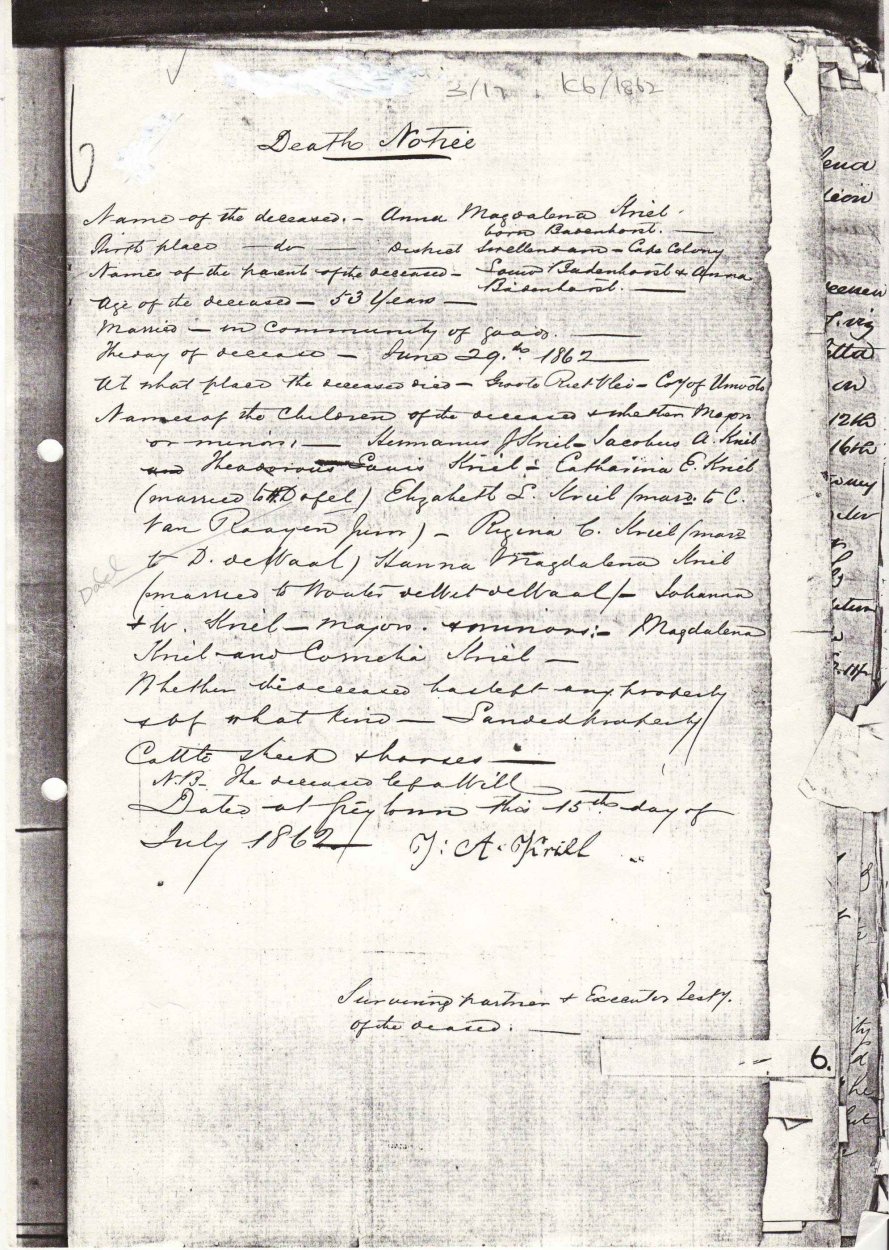 3/17 K6/1862
6
Death Notice
Name of the deceased. - Anna Magdalena Kriel.
born Badenhorst. —
Birth place — do — District Swellendam - Cape Colony
Names of the parents of the deceased - Louw Badenhorst & Anna
Badenhorst. —
Age of the deceased - 53 Years —
Married - in community of goods. —
The day of decease - June 29.th 1862 —
At what place the deceased died - Groote Riet Vlei - Coy of Umvoti
Names of the Children of the deceased & whether Major
or minors: — Hermanus J Kriel - Jacobus A. Kriel
and Theodorous Louis Kriel - Catharina E. Kriel
(married to H. Dafel) Elizabeth L. Kriel (mard. to C.
Van Rooyen Junr) - Regina C. Kriel (mard
to D. de Waal) Hanna Magdalena Kriel
Dafel
(married to Wouter de Wet de Waal) - Johanna
& W. Kriel - majors. & minors: - Magdalena
Kriel and Cornelia Kriel —
Whether the deceased has left any property
& of what kind — Landed property
Cattle sheep & horses —
N.B. The deceased left a Will —
Dated at Greytown this 15th day of
July 1862 T: A. Kriel
Surviving partner & Executor Testy.
of the deased. —
6.